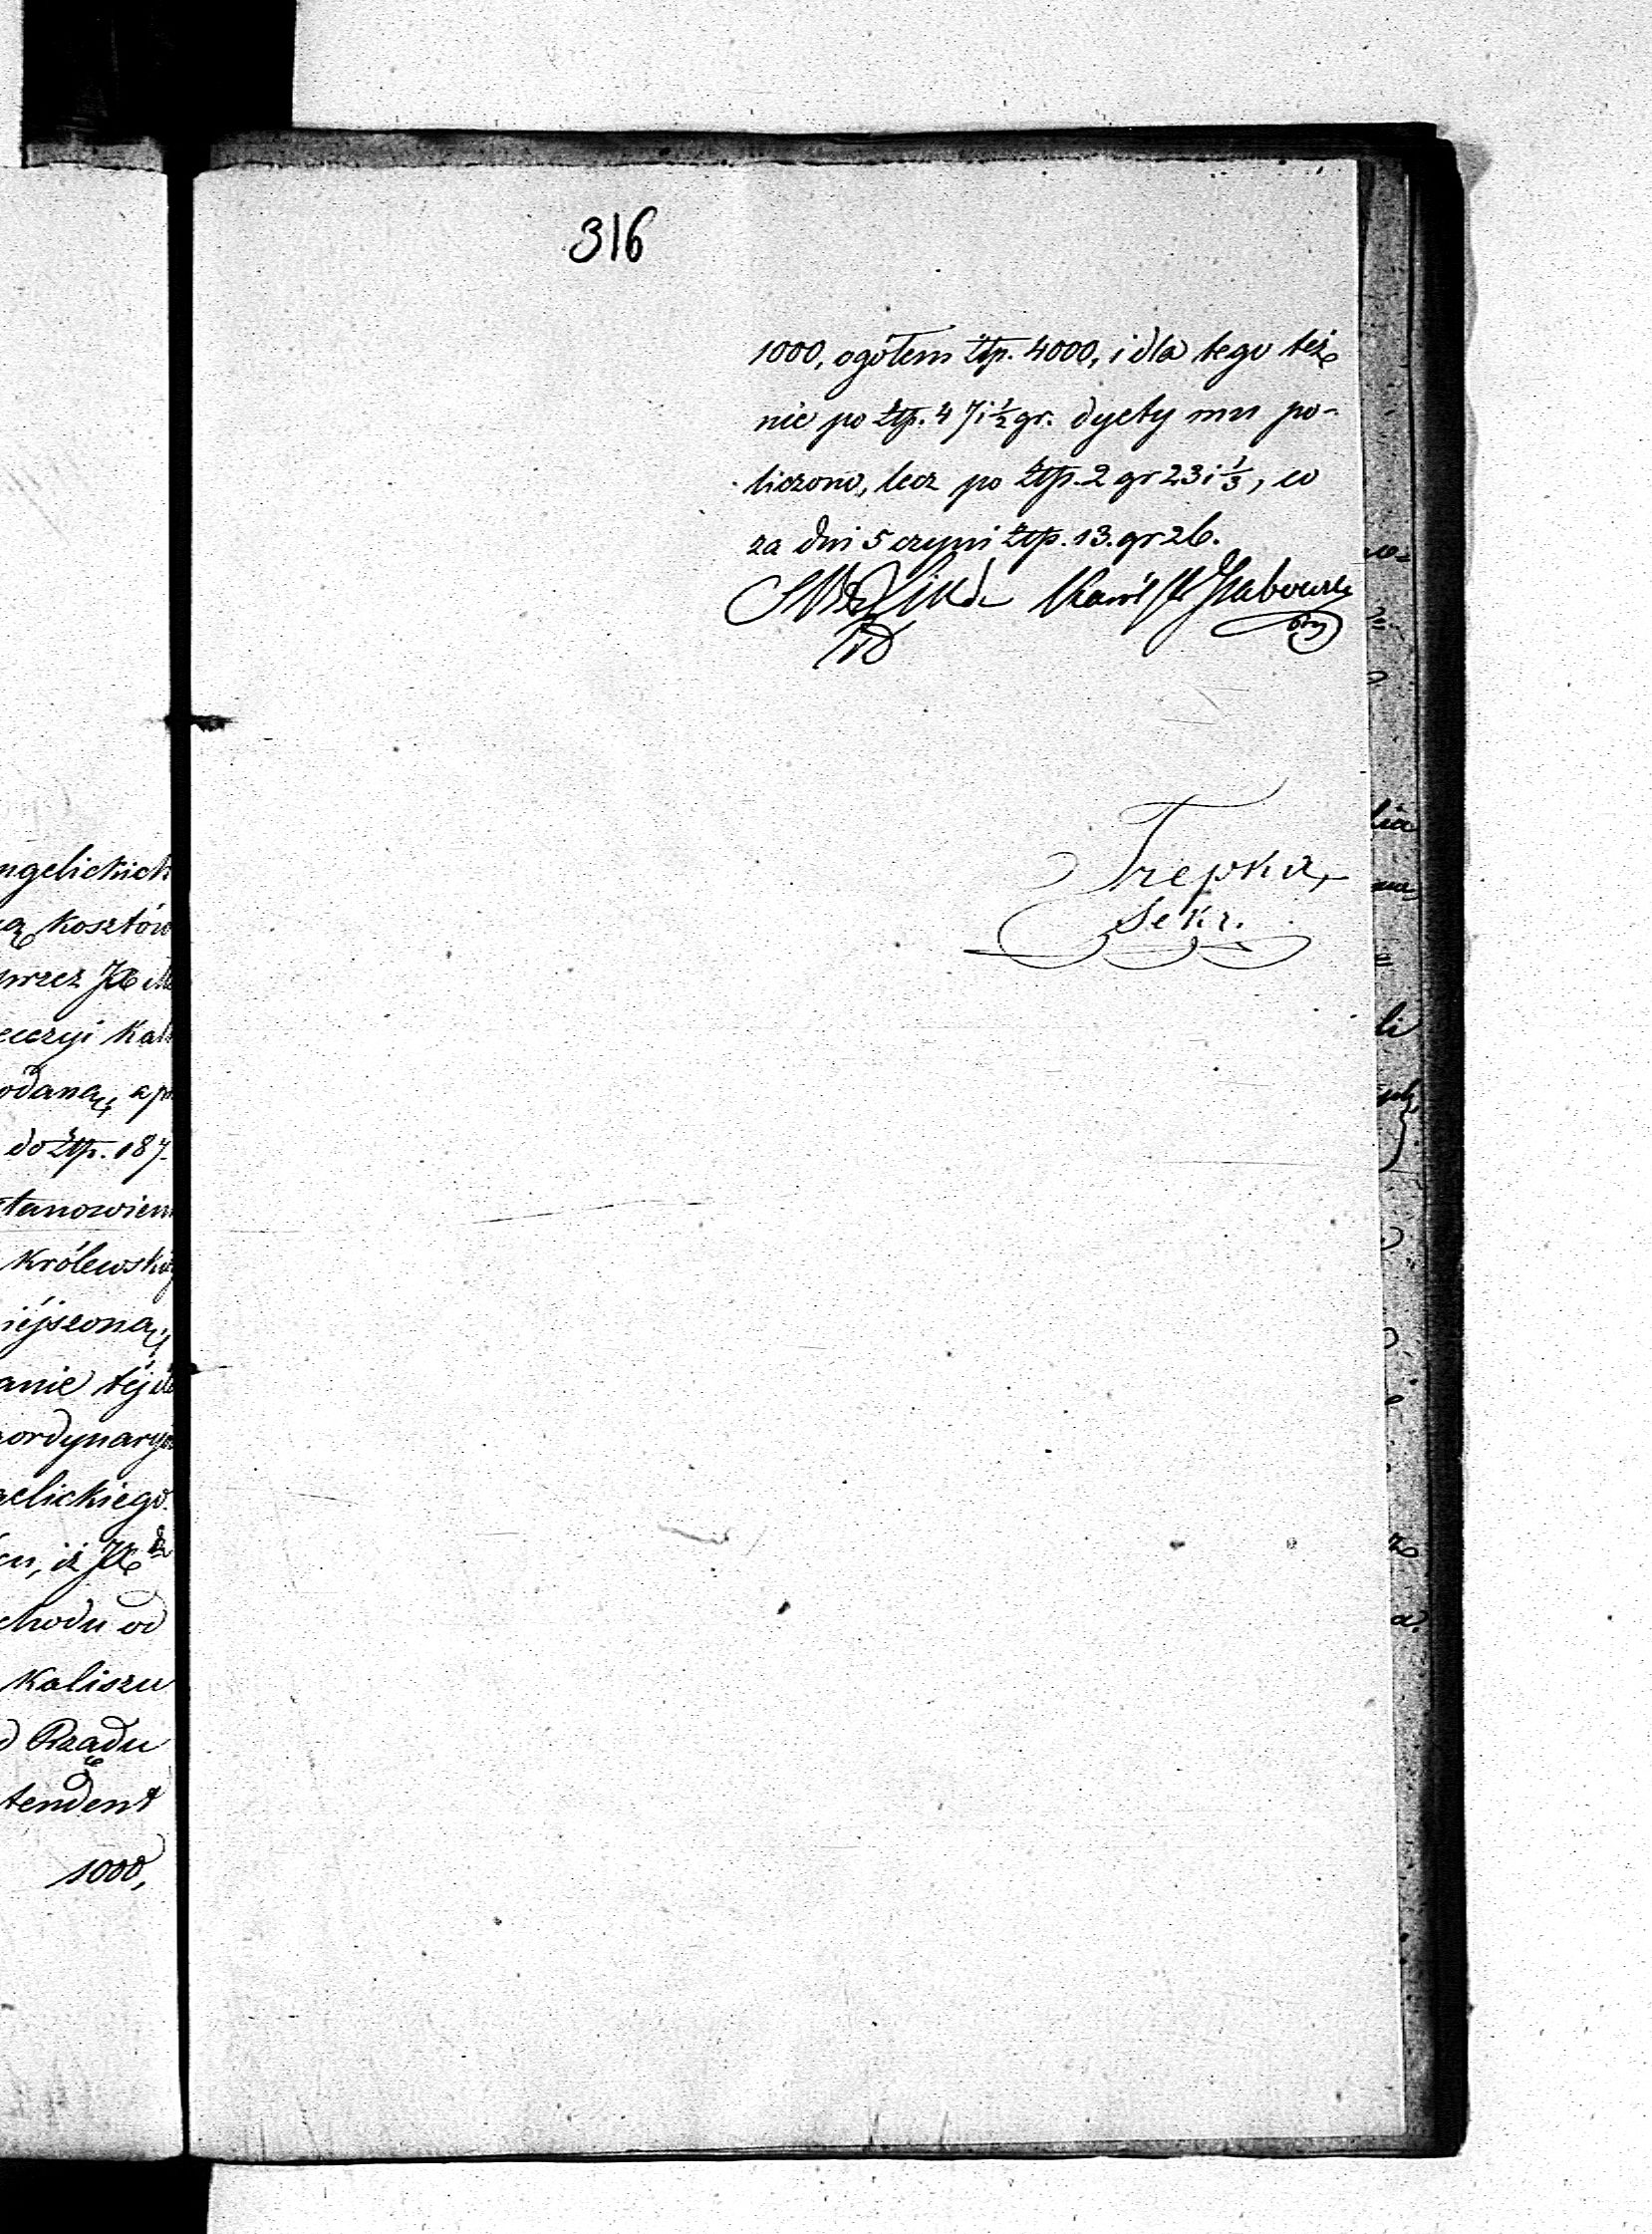 ngelickich
ą kosztów
przez JX
ecczyi Kali
odaną, a p
do Złp. 187.
stanowien
Królewskiej
iejszona,
anie téj
ordynaryi
elickiego.
iż JX
chodu od
Kaliszu
Rządu
tendent
1000,
316
1000, ogółem Złp. 4000, i dla tego też
nie po Złp. 4 7i½ gr. dyety mu po-
liczono, lecz po Złp. 2 gr 23 i ⅓, co
za dni 5 czyni Złp. 13. gr 26.
Grabowski
Trepka,
Sekr.